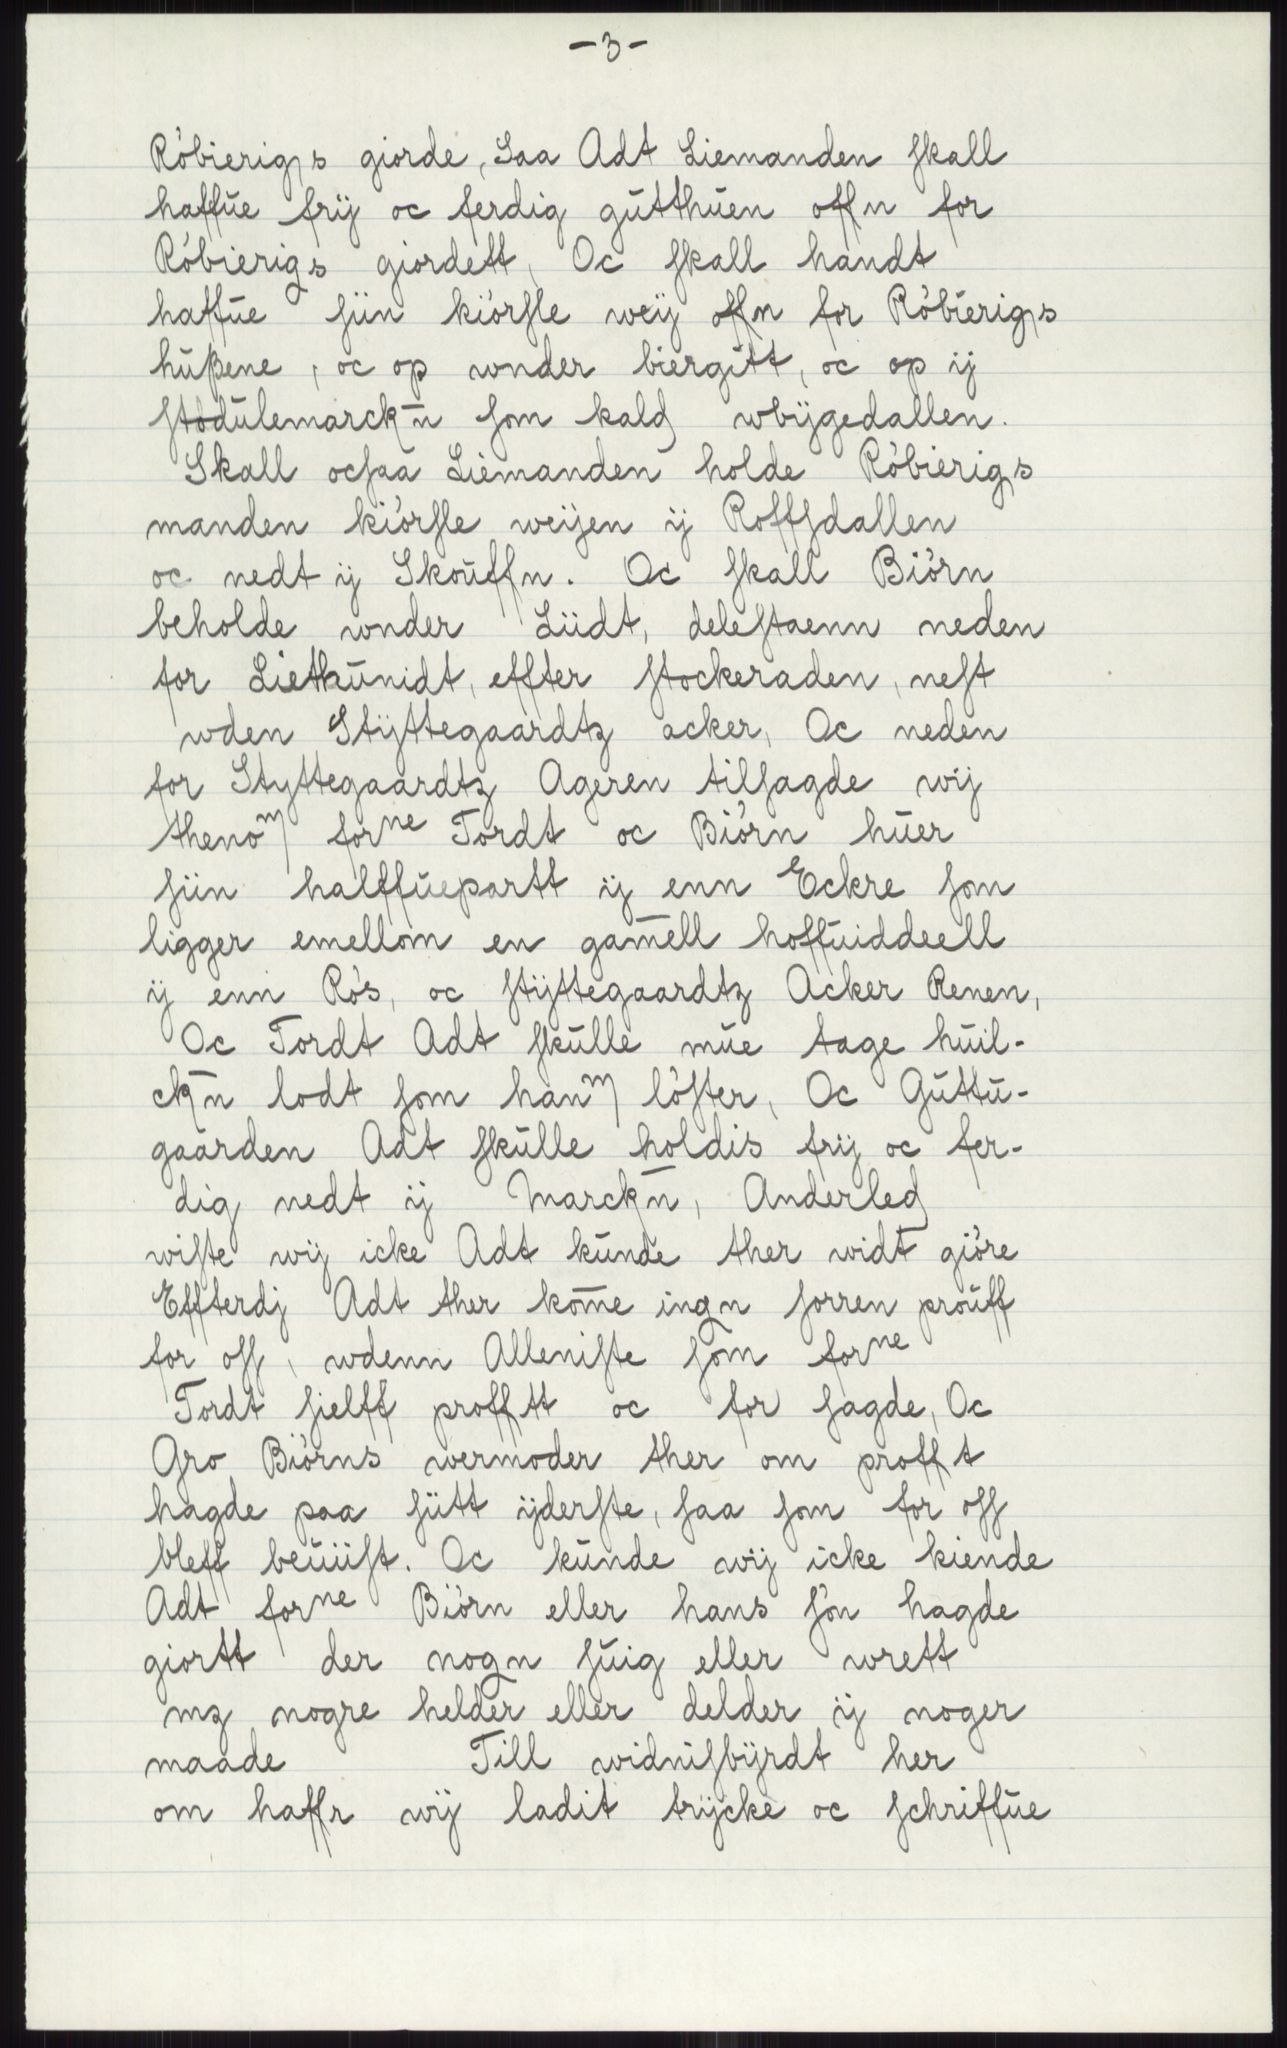 -3-
Röbierigs giorde, Saa Adt Liemanden skall
haffue frij oc ferdig gutthuen offn for
Röbierigs giordett, Oc skall handt
haffue siin kiörsle weij offn for Röbierigs
hußene, oc op wnder biergitt, oc op ij
stodulemarckn̄ som kald wbÿgedallen.
Skall ocsaa Liemanden holde Röbierigs
manden kiörsle weijen ij Roffsdallen
oc nedt ij Skouffn. Oc skall Biörn
beholde wnder Liidt, delestaenn neden
for Liethunidt, effter stockeraden, nest
wden Stÿttegaardtz acker, Oc neden
for Styttegaardtz Ageren tilsagde wij
thenom forne Tordt oc Biörn huer
siin halffuepartt ij enn Eckre som
ligger emellom en gam̄ell hoffuiddeell
ij enn Rös, oc stÿttegaardtz Acker Renen,
Oc Tordt Adt skulle mue tage huil-
ckn̄ lodt som hanm löster, Oc Guttu-
gaarden Adt skulle holdis frij oc fer-
dig nedt ij Marckn̄, Anderled
wiste wij icke Adt kunde ther widt giöre
Effterdj Adt ther kom̄e ingn sorren prouff
for oss, wdenn Alleniste som forne
Tordt sielff profftt oc for sagde, Oc
Gro Biörns wermoder ther om profft
hagde paa siitt ÿderste, saa som for oss
bleff beuiist. Oc kunde wij icke kiende
Adt forne Biörn eller hans sön hagde
giortt der nogn suig eller wrett
mz nogre helder eller delder ij noger
maade Till widnisbÿrdt her
om haffr wij ladit trÿcke oc schriffue